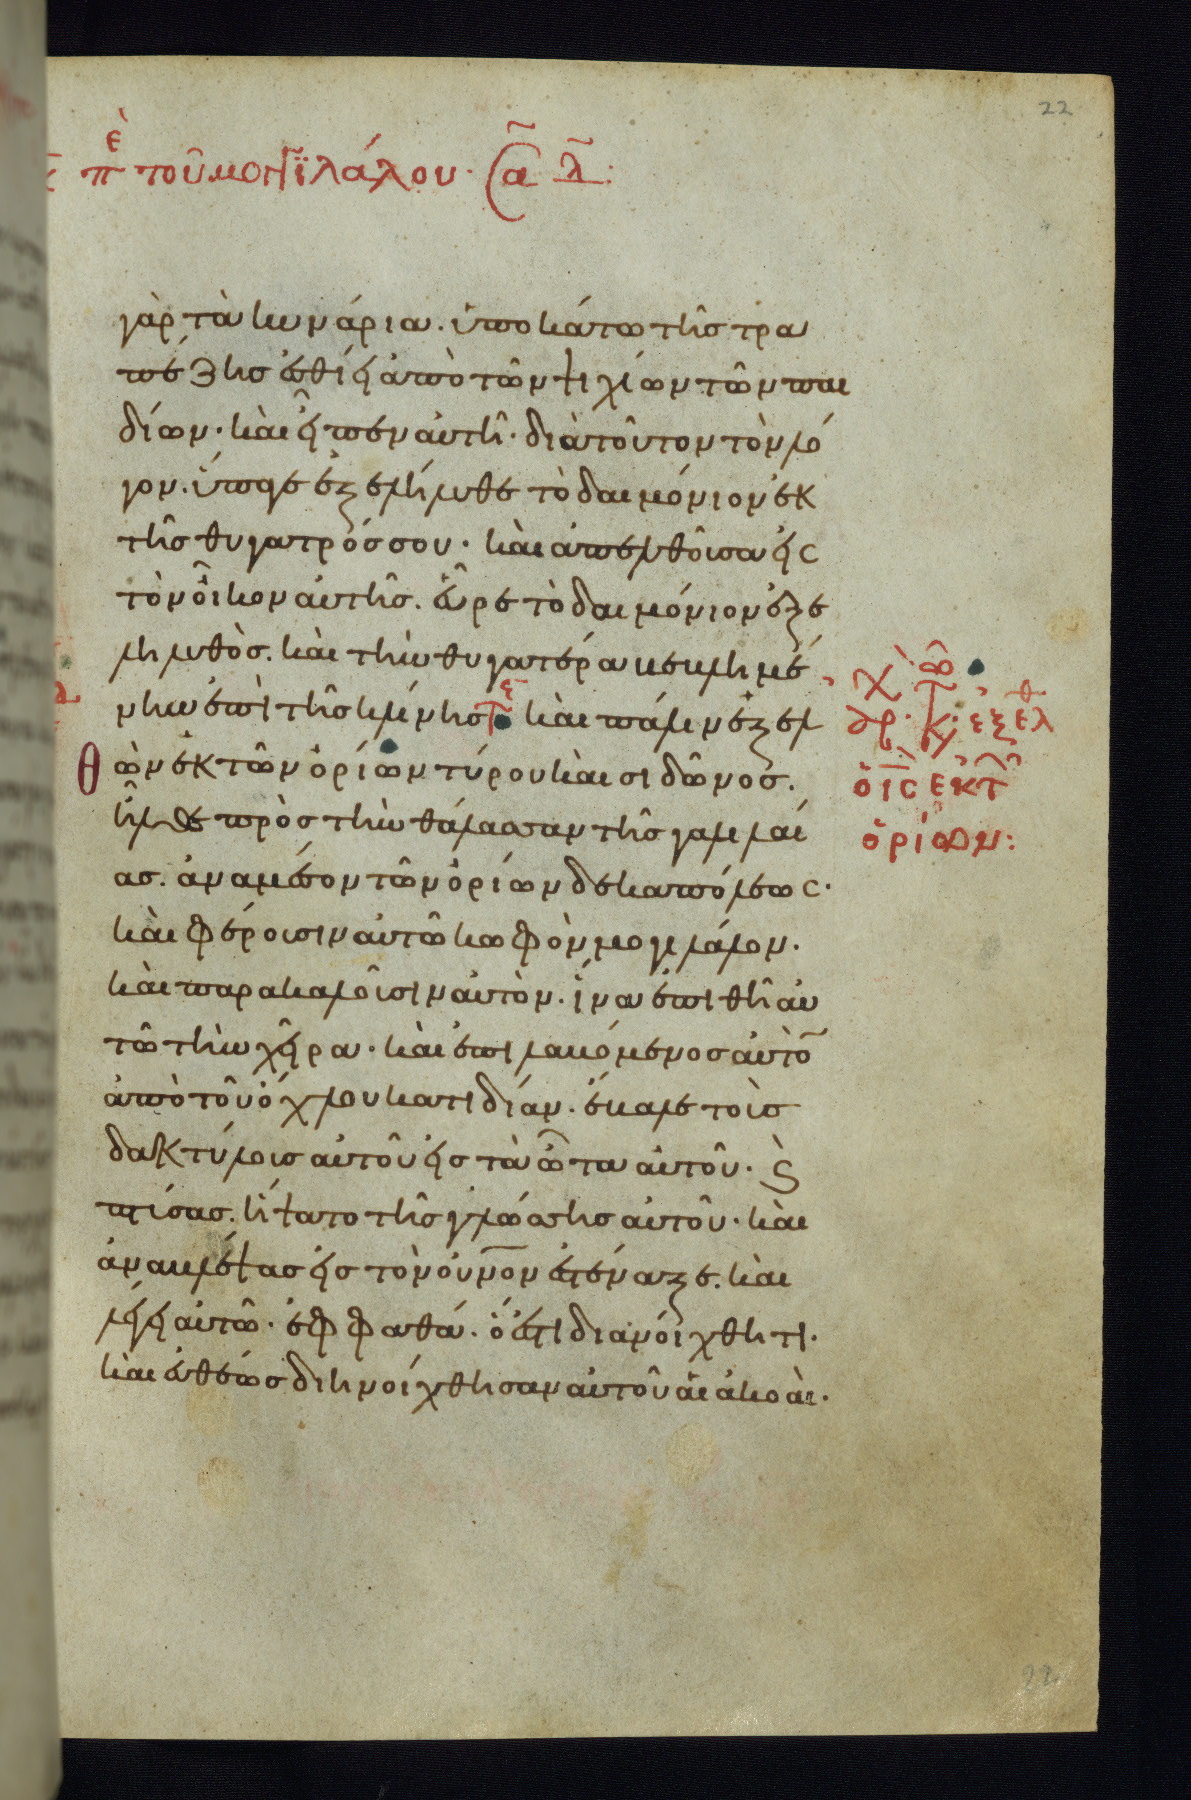 22
πε τοῦ μογγϊλάλου· α λ:
γὰρ τὰ κυνάρια. ὑποκάτω τῆς τρα
πέζης ἐσθίει ἀπὸ τῶν ψιχίων τῶν παι
δίων· καὶ εἶπεν αὐτῆ· διὰ τοῦτον τὸν λό
γον. ὕπαγε ἐξελήλυθε τὸ δαιμόνιον ἐκ
τῆς θυγατρός σου· καὶ ἀπελθοῦσα εἰς
τὸν οἶκον αὐτῆς. εὗρε τὸ δαιμόνιον ἐξε
ληλυθὸς. καὶ τὴν θυγατέρα βεβλημέ
νην ἐπὶ τῆς κλίνης τε καὶ πάλιν ἐξελ
θὼν ἐκ τῶν ὁρίων τύρου καὶ σιδῶνος.
ἦλθε πρὸς τὴν θάλασσαν τῆς γαλιλαί
ας. ἀναμέσον τῶν ὁρίων δεκαπόλεως·
καὶ φέρουσιν αὐτῶ κωφὸν μογιλάλον.
καὶ παρακαλοῦσιν αὐτὸν. ἵνα ἐπιθῆ αὐ
τῶ τὴν χεῖρα· καὶ ἐπιλαβόμενος αὐτο
ἀπὸ τοῦ ὄχλου κατιδίαν. ἔβαλε τοὺς
δακτύλους αὐτοῦ εἰς τὰ ὦτα αὐτοῦ· ϗ
πτύσας. ἥψατο τῆς γλώσσης αὐτοῦ· καὶ
ἀναβλέψας εἰς τὸν οὐνον ἐστέναξε. καὶ
λέγει αὐτῶ· ἐφφαθά. ὅ ἐστι διανοίχθητι·
καὶ εὐθέως διηνοίχθησαν αὐτοῦ αἱ ἀκοαὶ·
ἐξελθ
ὁ ις ἐκ τ
ὁρίων:
22